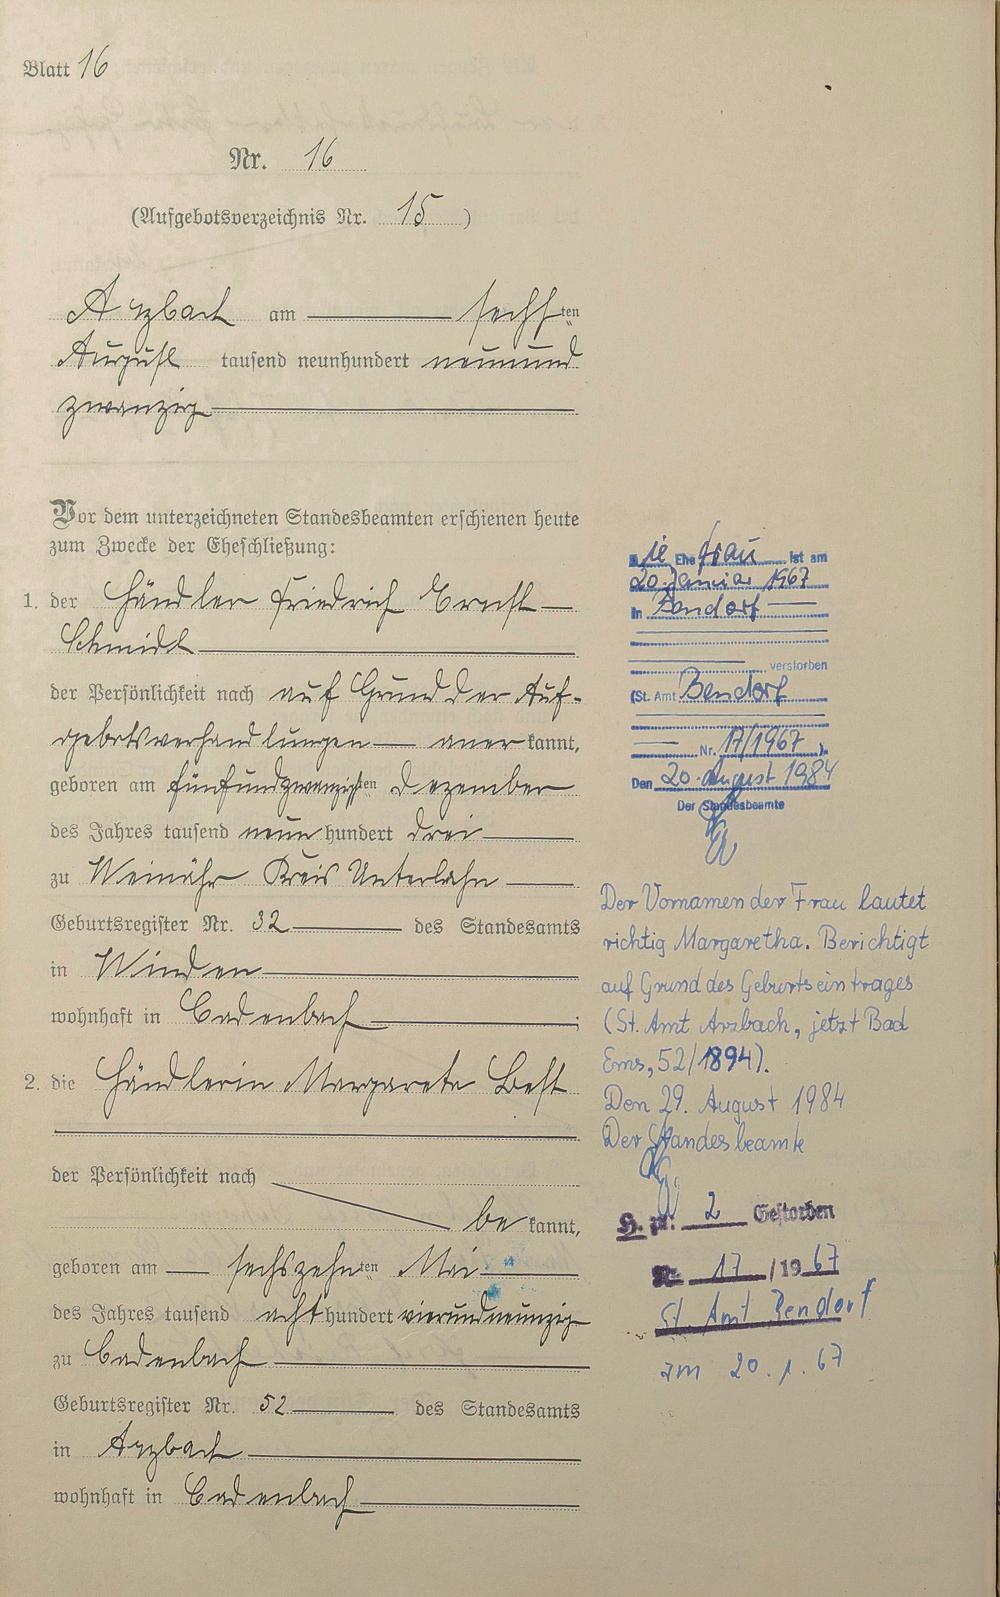 Blatt 16
Nr. 16
(Aufgebotsverzeichnis Nr. 15)
Arzbach am sechsten
August tausend neunhundert neunund
zwanzig
Vor dem unterzeichneten Standesbeamten erschienen heute
zum Zwecke der Eheschließung:
1. der Händler Friedrich Ernst
Schmidt
der Persönlichkeit nach auf Grund der Auf-
gebotsverhandlungen anerkannt,
geboren am fünfundzwanzigsten Dezember
des Jahres tausend neunhundert drei
zu Weinähr Kreis Unterlahn
Geburtsregister Nr. 32 des Standesamts
in Winden
wohnhaft in Cadenbach
2. die Händlerin Margareta Best
der Persönlichkeit nach
bekannt,
geboren am sechszehnten Mai
des Jahres tausend achthundert vierundneunzig
zu Cadenbach
Geburtsregister Nr. 52 des Standesamts
in Arzbach
wohnhaft in Cadenbach
Die Ehefrau ist am
20. Januar 1967
in Bendorf
verstorben
(St. Amt Bendorf
Nr. 17/1967).
Den 20. August 1984
Der Standesbeamte
Der Vornamen der Frau lautet
richtig Margaretha. Berichtigt
auf Grund des Geburtseintrages
(St. Amt Arzbach, jetzt Bad
Ems, 52/1894).
Den 29. August 1984
Der Standesbeamte
H. zu: 2 Gestorben
Nr. 17/1967
St. Amt Bendorf
am 20.1.67